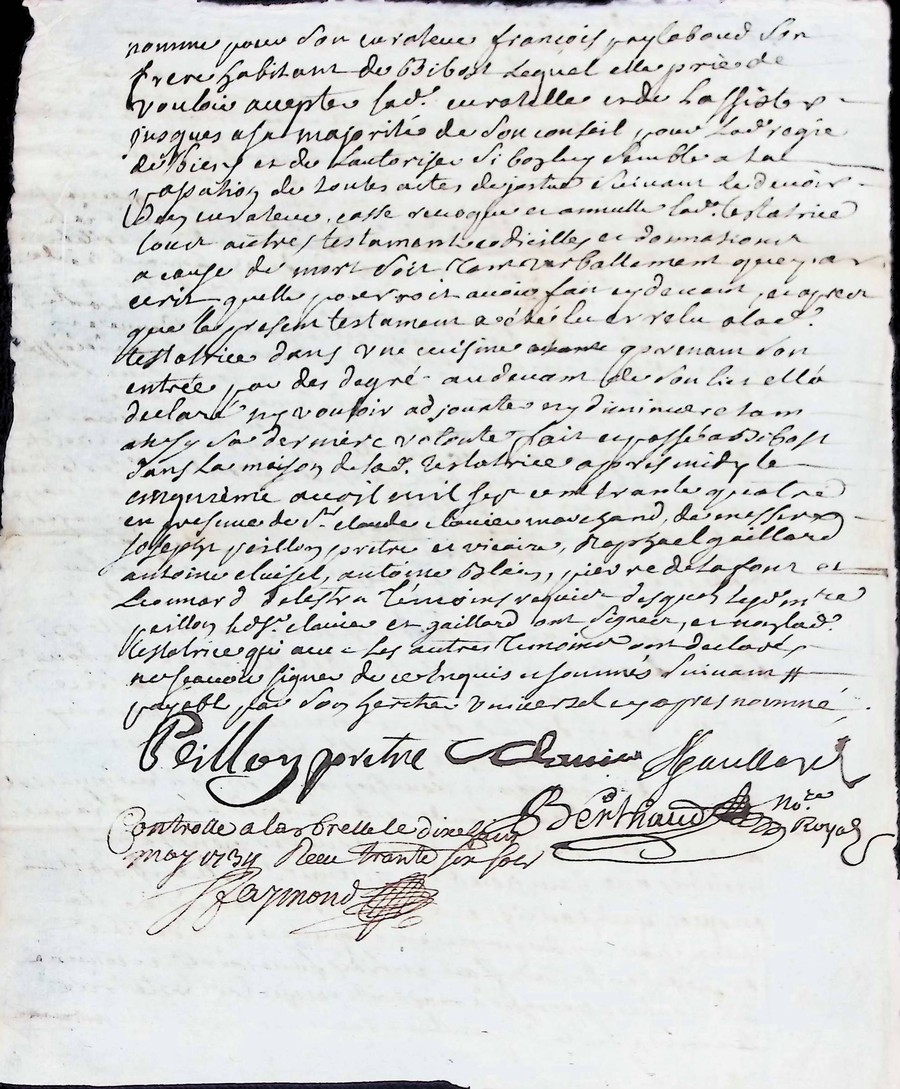 nomme pour son curateur françois paylaboud son
frere habitant de Bibost lequel elle prie de
vouloir accepter lad. curatelle et de L assister
jusques a sa majorité de son conseil pour La regie
de ses biens et de Lautoriser si besoing semble a la
passation de toutes actes de justice suivant le devoir
D un curateur, casse revoque et annulle lad. testatrice
tout autres testament codicilles et donnations
a cause de mort soit tant verballement que par
ecrit quelle pourroit avoir fait cy devant, et apres
que le present testament a été lu et relu a lad.
testatrice dans une cuisine prenant son
entrée par des degré au devant de son lit ell a
declaré ny vouloir adjouter ny diminuer etant
ainsy sa derniere volonte fait et passé a Bibost
dans la maison de lad. testatrice apres midy le
cinquieme avril mil sept cent trante quatre
en presence de Sr. claude clavier marchand, de messire
Joseph peillon pretre et vicaire, Raphael gaillard
antoine cloisel, antoine Blein, pierre delafont et
Leonnard delestra Témoins requis desquels led. mre
peillon led. Sr. clavier et gaillard ont signez, et non lad.
testatrice qui avec Les autres temoins ont declarés
ne scavoir signer de ce enquis et sommés suivant #
payable par son heritier universel cy apres nommé.
Peillon pretre Clavier R Gaillard
Berthaud Nore. Royal
Controllé a larbresle le dixe
may 1734 Receu trante six sols
Raymond